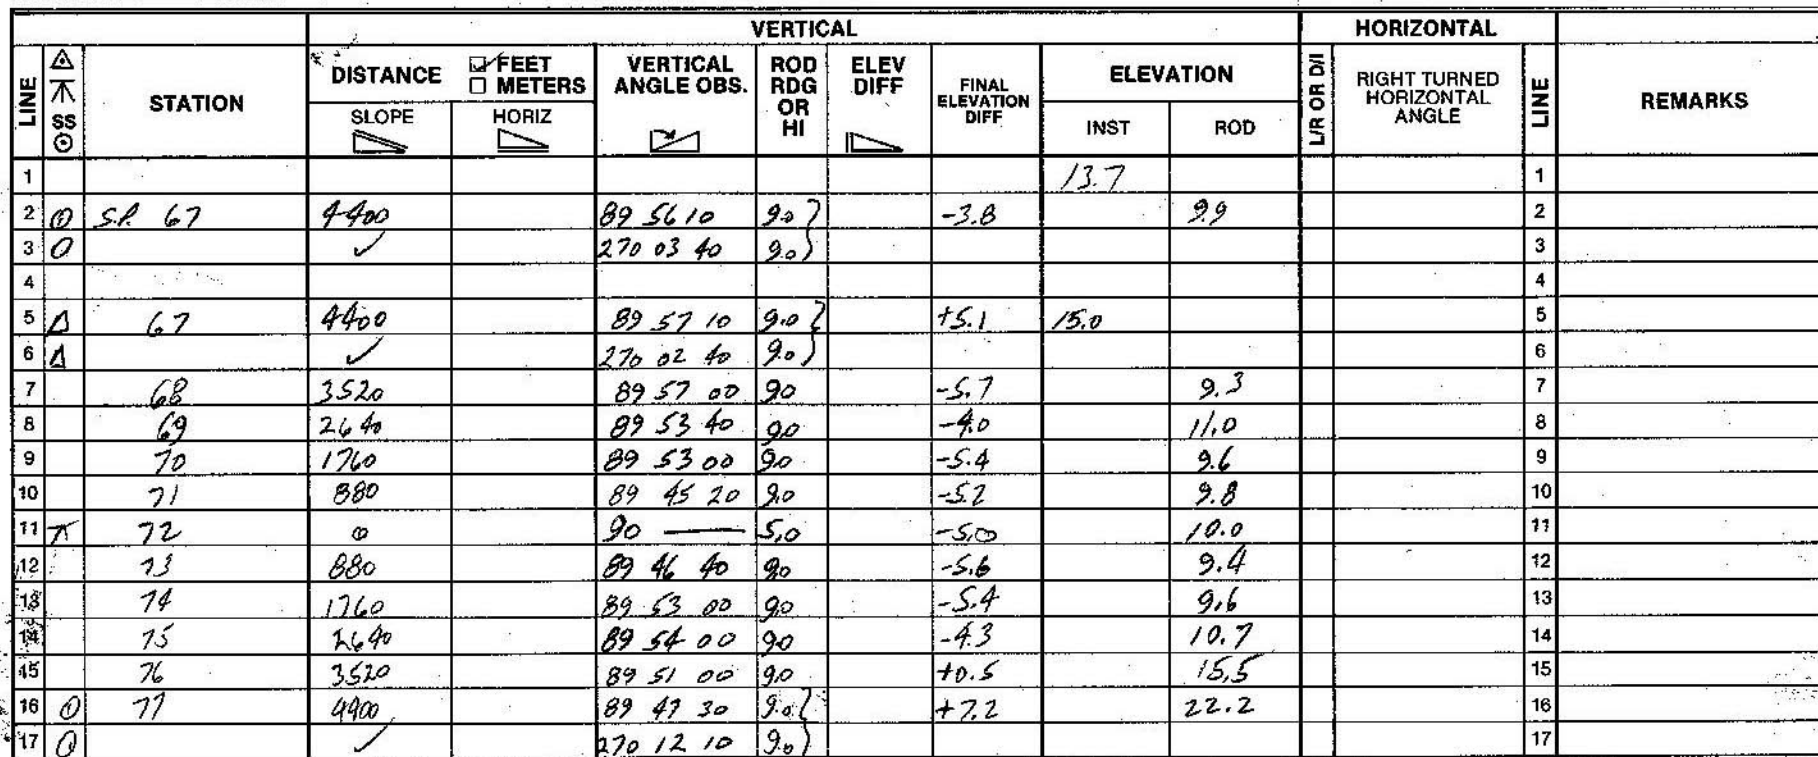 VERTICAL HORIZONTAL
LINE SS STATION DISTANCE ☑ FEET □ METERS VERTICAL ANGLE OBS. ROD RDG OR HI ELEV DIFF FINAL ELEVATION DIFF ELEVATION L/R OR D/I RIGHT TURNED HORIZONTAL ANGLE LINE REMARKS
SLOPE HORIZ INST ROD
1 13.7 1
2 S.P. 67 4400 89 56 10 9.0 -3.8 9.9 2
3 ✓ 270 03 40 9.0 3
4 4
5 Δ 67 4400 89 57 10 9.0 +5.1 15.0 5
6 Δ ✓ 270 02 40 9.0 6
7 68 3520 89 57 00 90 -5.7 9.3 7
8 69 2640 89 53 40 90 -4.0 11.0 8
9 70 1760 89 53 00 90 -5.4 9.6 9
10 71 880 89 45 20 9.0 -5.2 9.8 10
11 72 0 90 — 5.0 -5.0 10.0 11
12 73 880 89 46 40 90 -5.6 9.4 12
13 74 1760 89 53 00 90 -5.4 9.6 13
14 75 2640 89 54 00 90 -4.3 10.7 14
15 76 3520 89 51 00 90 +0.5 15.5 15
16 77 4400 89 47 30 9.0 +7.2 22.2 16
17 ✓ 270 12 10 9.0 17